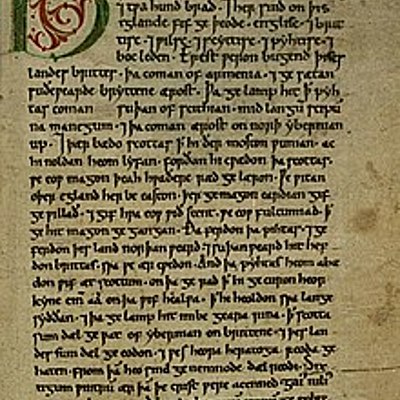 i tƿa hund brad. ⁊ her sind on þis
iglande fif geþeode. englisc. ⁊ brit
tisc. ⁊ ƿilsc. ⁊ scyttisc. ⁊ pyhtisc. ⁊
boc leden. Erest ƿeron bugend þises
landes brittes. þa coman of armenia. ⁊ gesætan
suðeƿearde bryttene ærost. Þa gelamp hit ꝥ pyh
tas coman suþan of scithian. mid langū scipū
na manegum. ⁊ þa coman ærost on norþ ybernian
up. ⁊ þær bædo scottas ꝥ hi ðer moston ƿunian. ac
hi noldan heom lyfan. forðan hi cƿædon þa scottas.
ƿe eoƿ magon þeah hƿaðere ræd gelæron. Ƿe ƿitan
oþer egland her be easton. þer ge magon eardian gif
ge ƿillað. ⁊ gif hƿa eoƿ ƿið stent. ƿe eoƿ fultumiað. ꝥ
ge hit magon gegangan. Ða ferdon þa pihtas. ⁊ ge
ferdon þis land norþan ƿeard. ⁊ suþan ƿeard hit hef
don brittas. sƿa ƿe ær cƿedon. And þa pyhtas heom abæ
don ƿif æt scottum. on þa gerad ꝥ hi gecuron heora
kyne aa on þa ƿif healfa. ꝥ hi heoldon sƿa lange
syððan. ⁊ þa gelamp hit imbe geara rina. ꝥ scotta
sum dæl geƿat of ybernian on brittene. ⁊ þes lan
des sum dæl geeodon. ⁊ ƿes heora heratoga reoda ge
haten. From þā heo sind genemnode dælreodi. Six
tigum ƿintrū ær þā þe crist ƿere acenned. gaiꝰ iuliꝰ